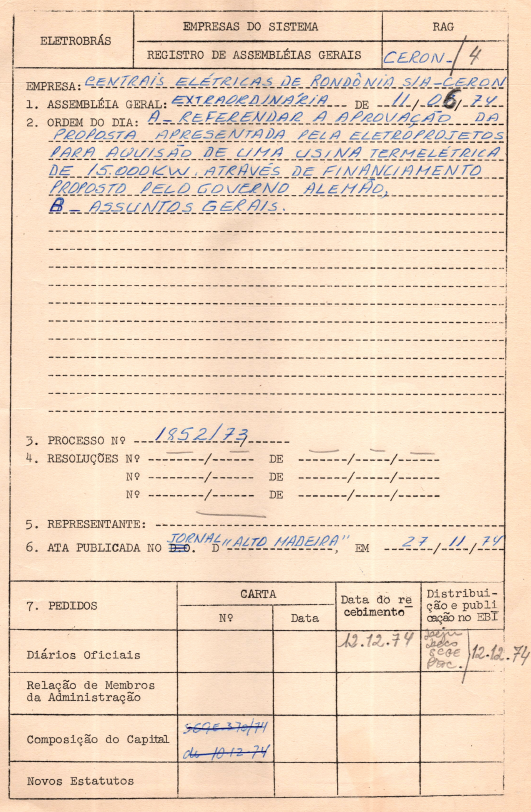 ELETROBRÁS
EMPRESAS DO SISTEMA
RAG
REGISTRO DE ASSEMBLÉIAS GERAIS
CERON-/4
EMPRESA: CENTRAIS ELÉTRICAS DE RONDÔNIA S/A-CERON
1. ASSEMBLÉIA GERAL: EXTRAORDINÁRIA DE 11/06/74
2. ORDEM DO DIA: A- REFERENDAR A APROVAÇÃO DA
PROPOSTA APRESENTADA PELA ELETROPROJETOS
PARA AQUISÃO DE UMA USINA TERMELÉTRICA
DE 15.000KW, ATRAVÉS DE FINANCIAMENTO
PROPOSTO PELO GOVERNO ALEMÃO,
B- ASSUNTOS GERAIS.
3. PROCESSO Nº 1852/73/
4. RESOLUÇÕES Nº ------/------ DE -----/-----/-----
Nº ------/------ DE -----/-----/-----
Nº ------/------ DE -----/-----/-----
5. REPRESENTANTE:
6. ATA PUBLICADA NO D.O. D JORNAL "ALTO MADEIRA", EM 27/11/74
7. PEDIDOS
CARTA
Nº
Data
Data do re
cebimento
Distribui-
ção e publi
cação no EBI
Diários Oficiais
12.12.74
SCOE
12.12.74
Relação de Membros
da Administração
Composição do Capital
SCOE-370/74
de 10.12.74
Novos Estatutos